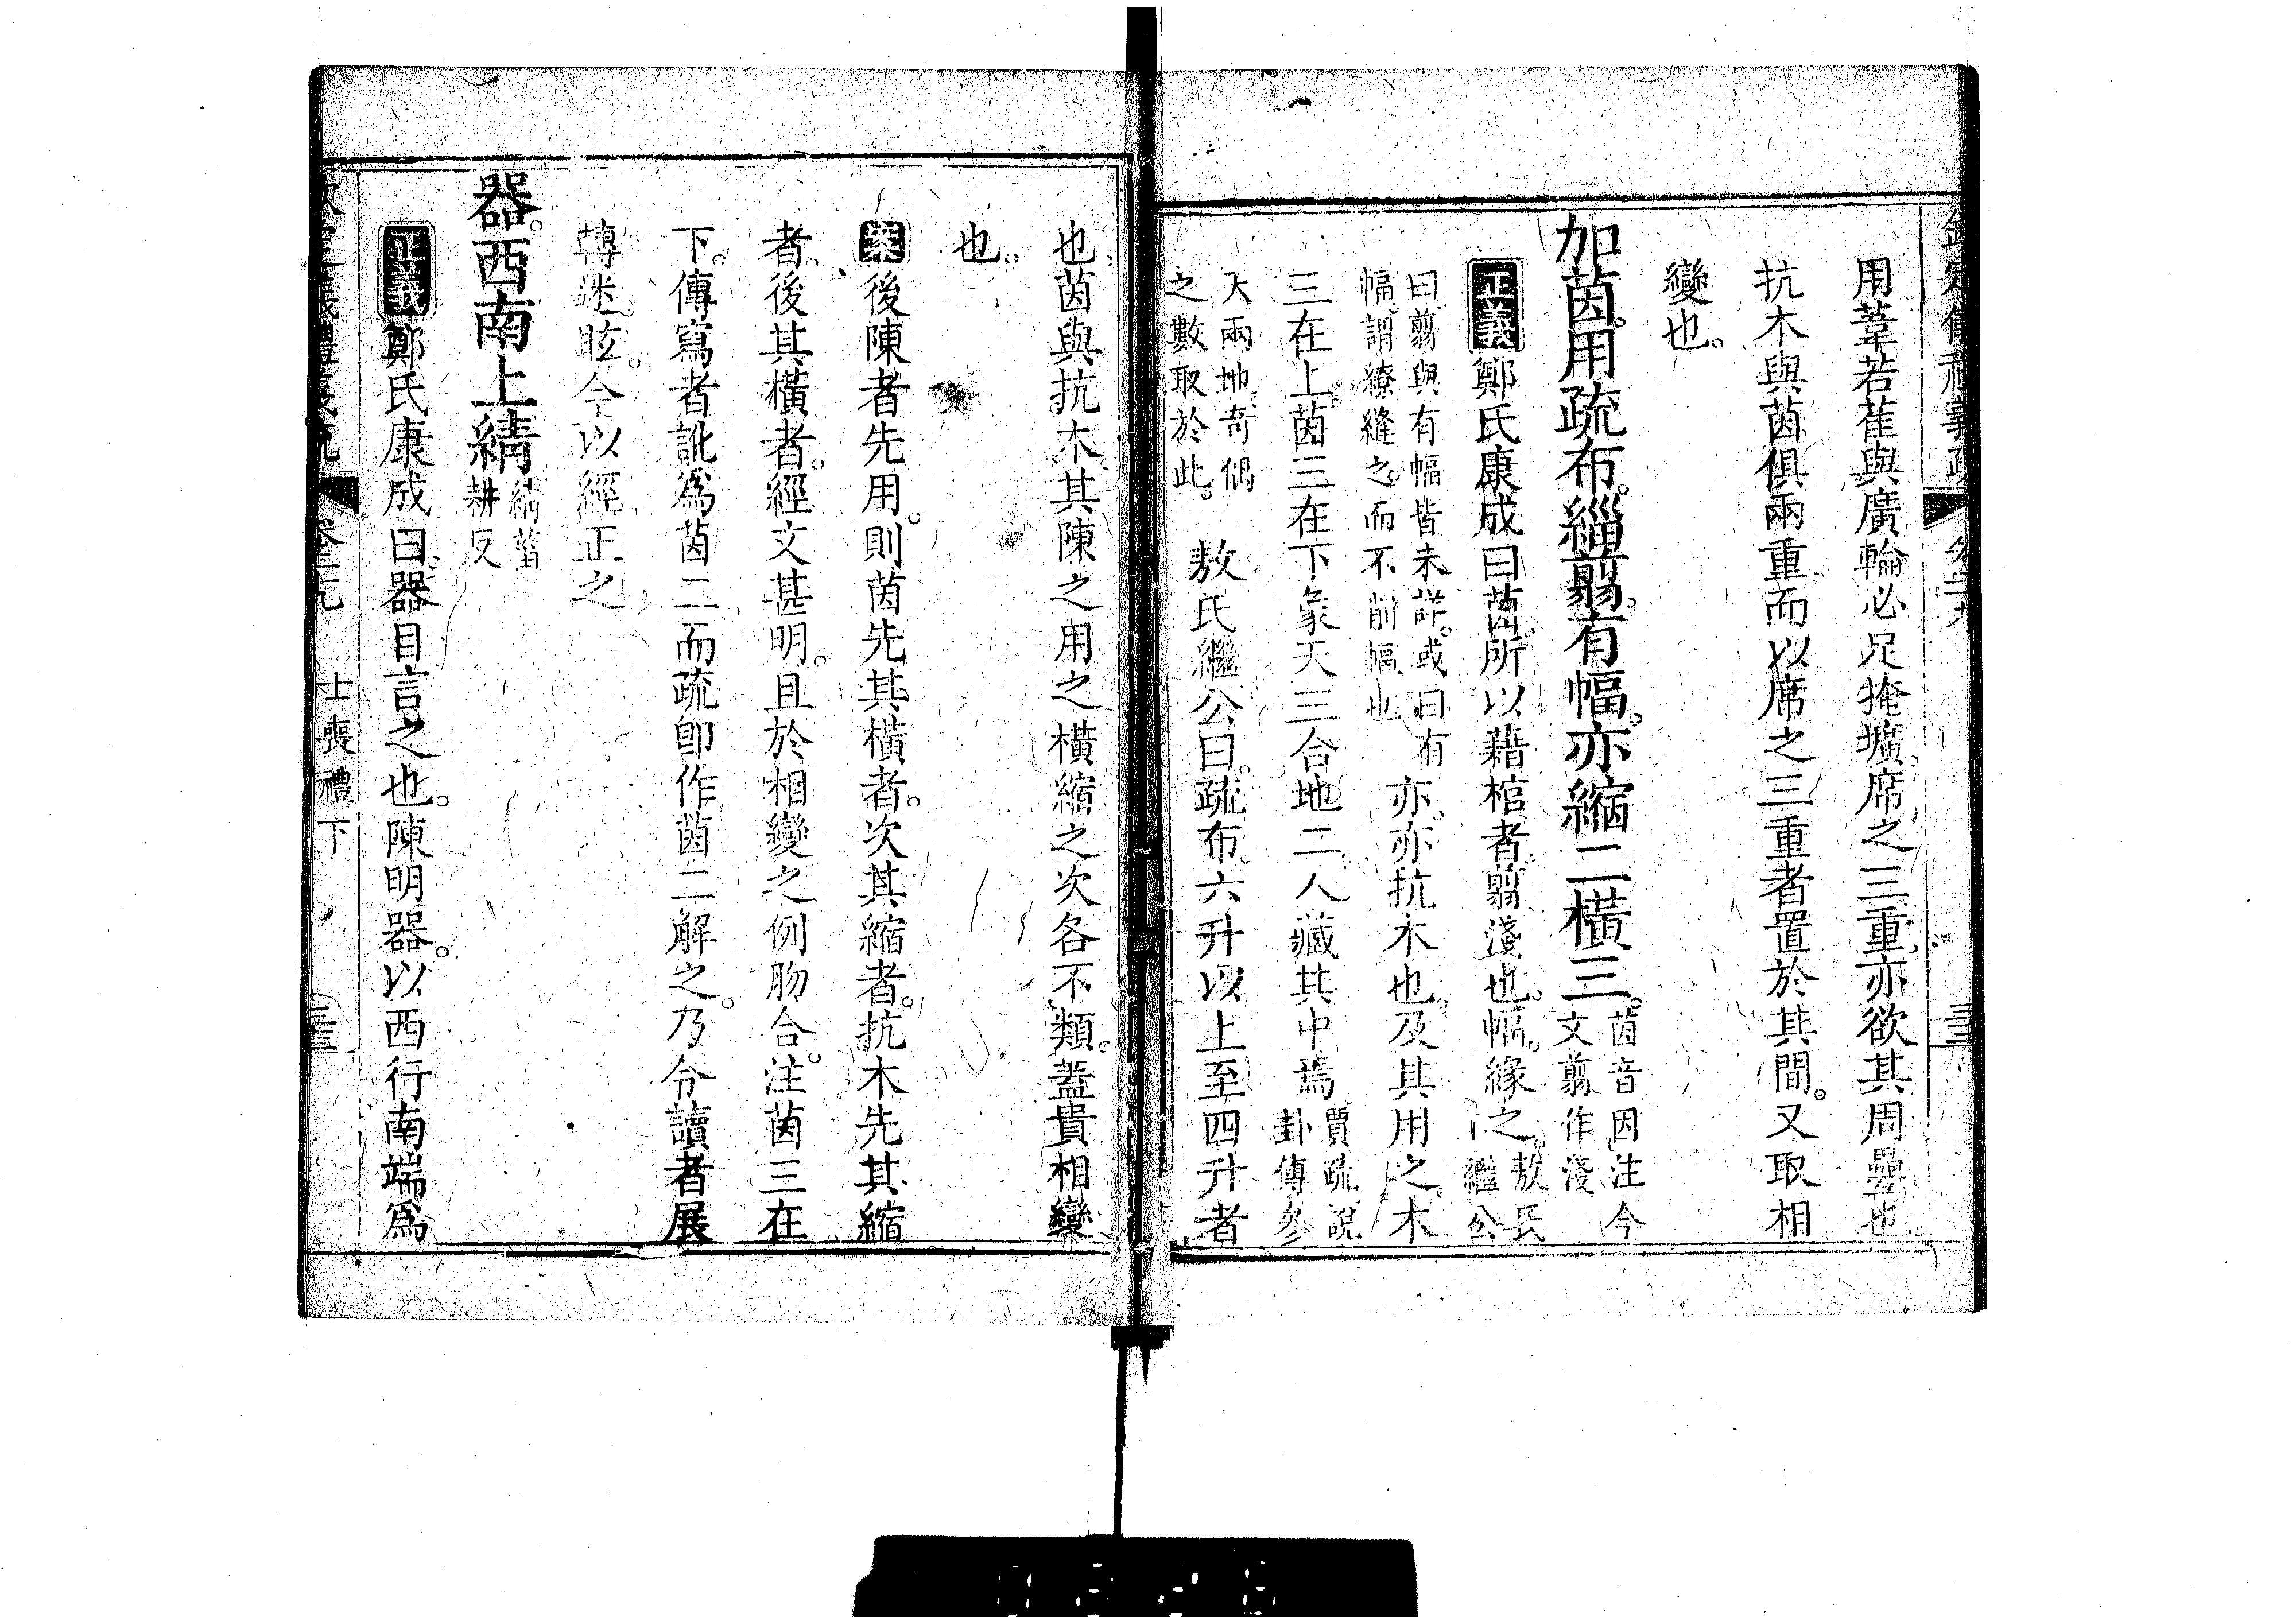 欽定儀禮義疏　卷二十九
用葦若萑與廣輪必足掩壙席之三重亦欲其周疊也
抗木與茵俱兩重而以席之三重者置於其間。又取相
變也。
加茵。用疏布。緇翦。有幅。亦縮二橫三。茵音因注今
文翦作淺
正義鄭氏康成曰茵所以藉棺者翦淺也。幅。緣之。敖氏
繼公
曰翦與有幅皆未詳。或曰有
幅。謂繚縫之。而不削幅也
亦。亦抗木也。及其用之。木
三在上茵三在下象天三合地二。人藏其中焉賈疏說
卦傳參
天兩地。奇偶
之數取於此。
敖氏繼公曰。疏布六升以上至四升者
也。茵與抗木其陳之用之橫縮之次各不類。蓋貴相變
也。
案後陳者先用。則茵先其橫者。次其縮者。抗木先其縮
者。後其橫者。經文甚明。且於相變之例脗合。注茵三在
下。傳寫者訛爲茵二而疏卽作茵二解之。乃令讀者展
轉迷眩。今以經正之
器。西南上綪綪菑
耕反
正義鄭氏康成曰。器目言之也。陳明器。以西行南端爲
欽定儀禮義疏　卷二九　士喪禮下